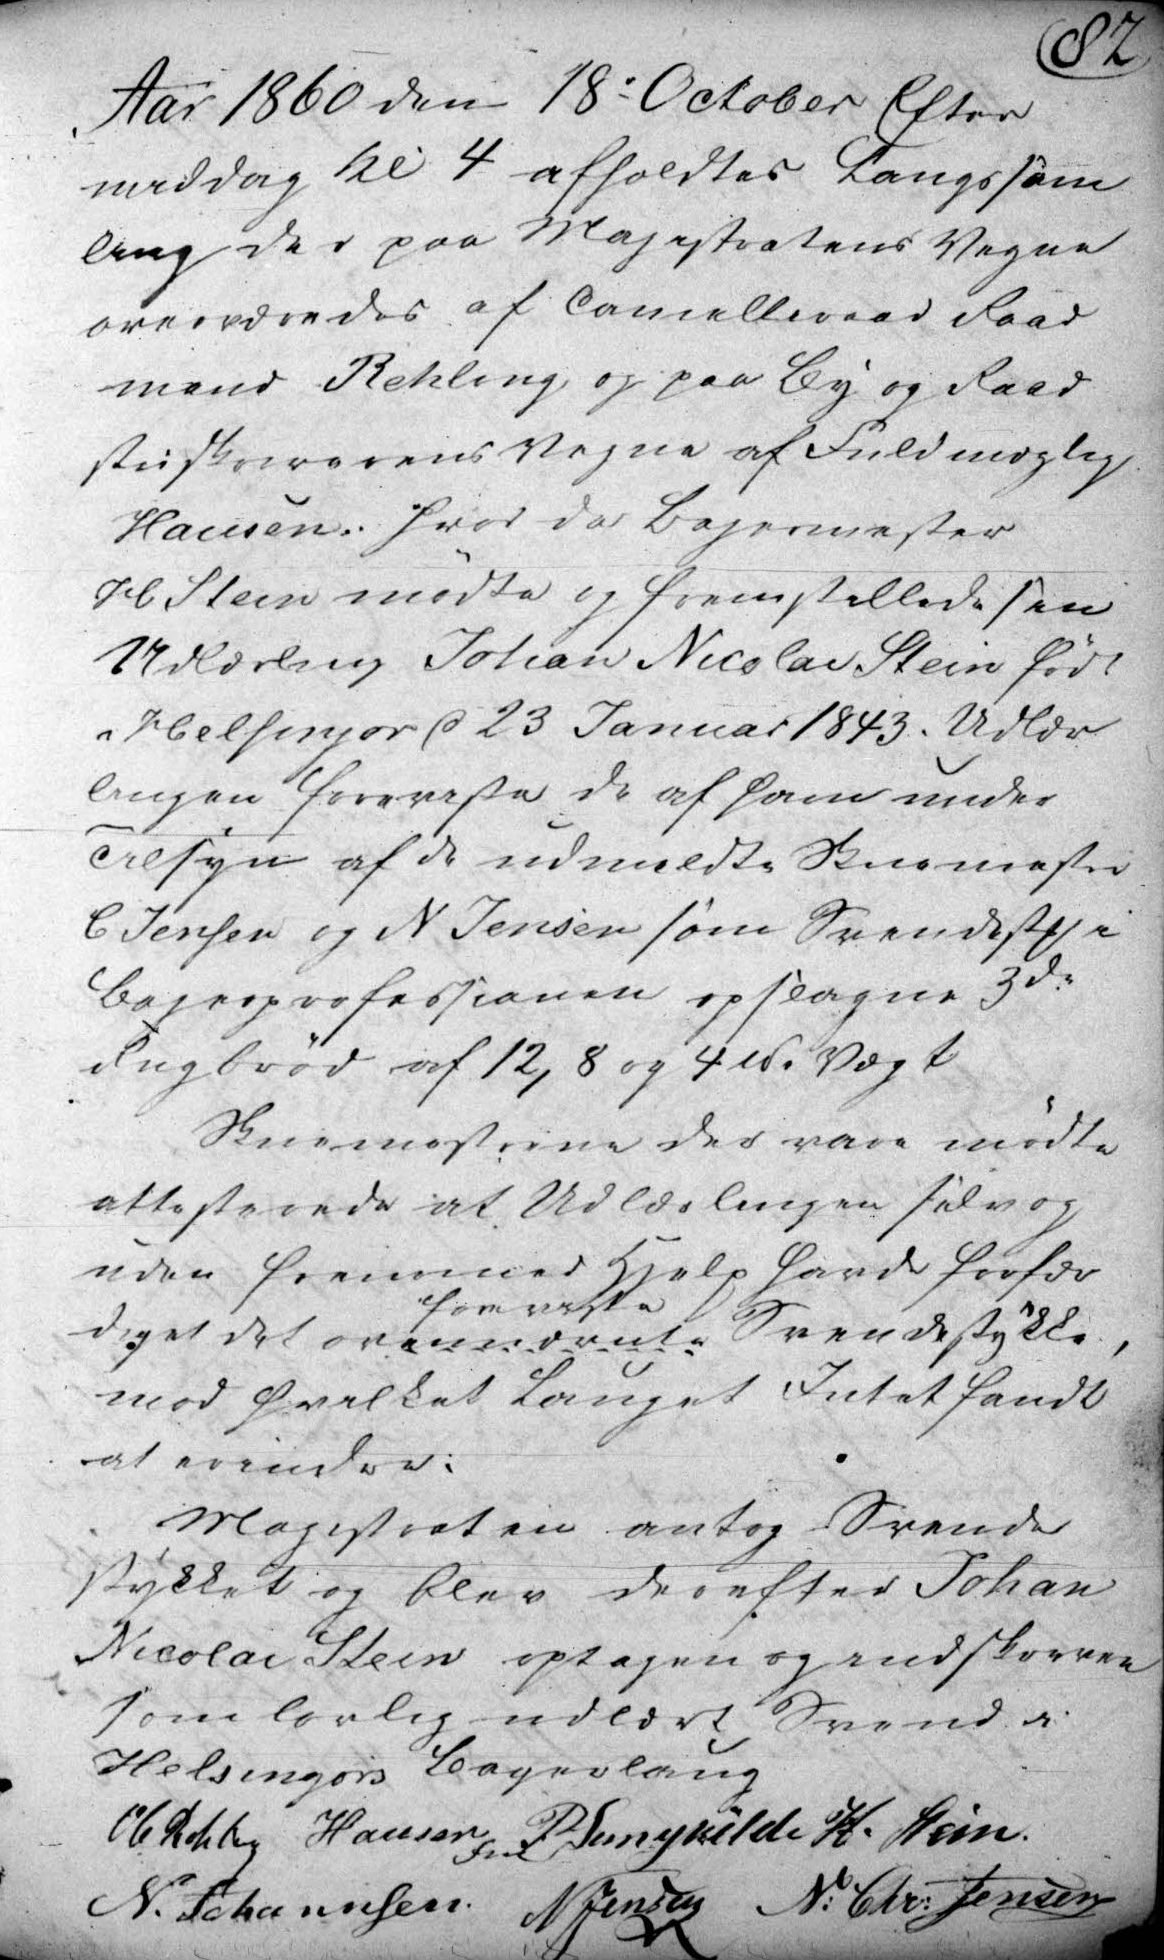 82
Aar 1860 den 18: October Efter
middag Kl 4 afholdtes Laugssam
ling der paa Magistratens Vegne
overværedes af Cancelliraad Raad
mand Rehling og paa By og Raad
stueskriverens Vegne af Fuldmægtig
Hansen. Hvor da Bagermester
H Stein mødte og fremstillede sin
Udlærling Johan Nicolai Stein født
i Helsingør d 23 Januar 1843. Udlær
lingen foreviste de af ham under
Tilsyn af de udmeldte Skuemestre
C Jensen og N Jensen som Svendestk i
Bagerprofessionen opslagne 3de
Rugbrød af 12, 8 og 4 Vægt
Skuemestrene der vare mødte
attesterede at Udlærlingen selv og
uden fremmed Hjelp havde forfær
foreviste
diget det ovennævnte Svendestykke,
mod hvilket Lauget Intet fandt
at erindre.
Magistraten antog Svende
stykket og blev derefter Johan
Nicolai Stein optagen og indskreven
som lovlig udlært Svend i
Helsingørs Bagerlaug
Rehling Hansen H. Stein.
N. Johannsen. N Jensen N: Chr: Jensen